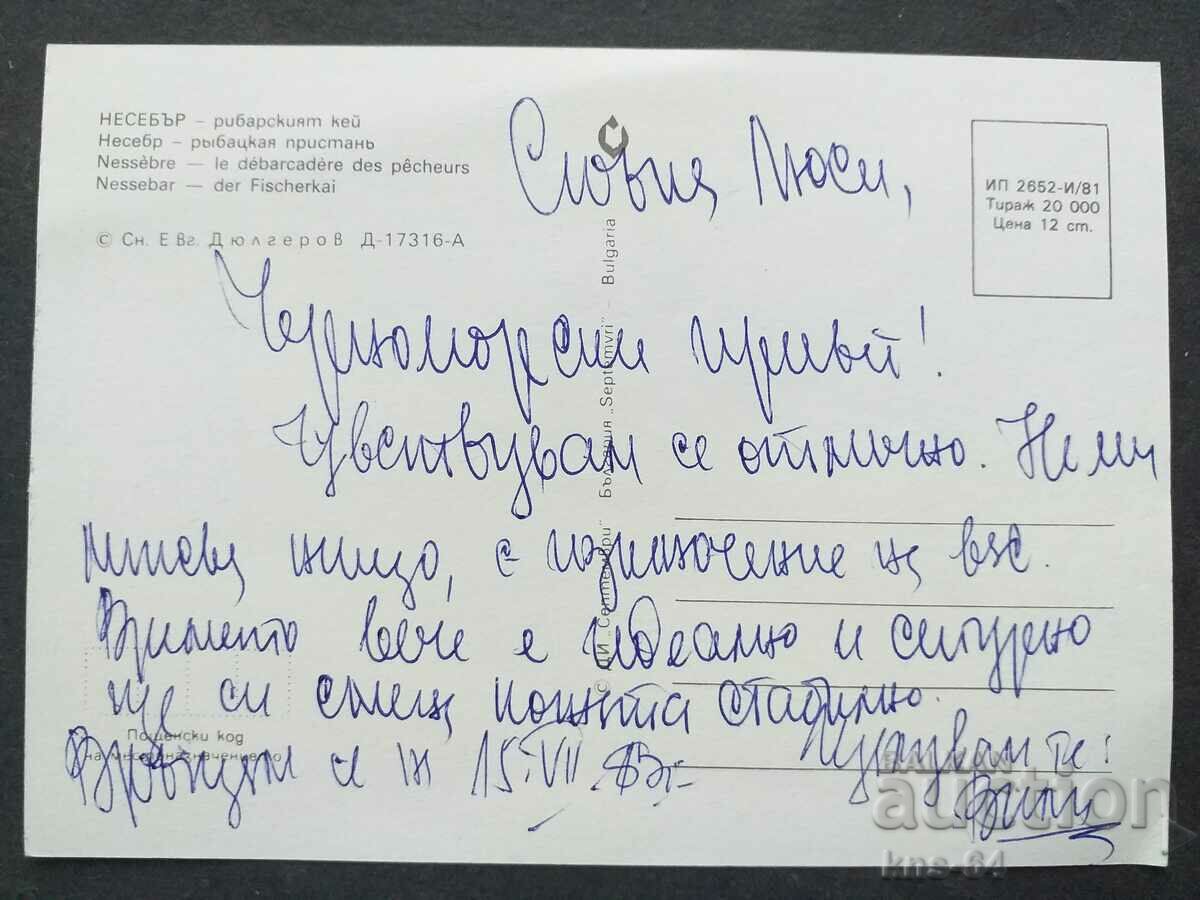 НЕСЕБЪР – рибарският кей
Несебр – рыбацкая пристань
Nessèbre — le débarcadère des pêcheurs
Nessebar — der Fischerkai
© Сн. Е Вг. Дюлгеров Д-17316-А
ИП 2652-И/81
Тираж 20 000
Цена 12 ст.
© ДИ „Септември" България „Septemvri" – Bulgaria
Люси,
Черноморски привет!
Чувствувам се отлично. Не ми
липсва нищо, с изключение на вас.
Времето вече е идеално и сигурно
ще си сменя кожата стабилно.
Връщам се на 15.VII.83г.
Целувам те:
Пощенски код
на местоназначението
BALKAN
auction
kns-64